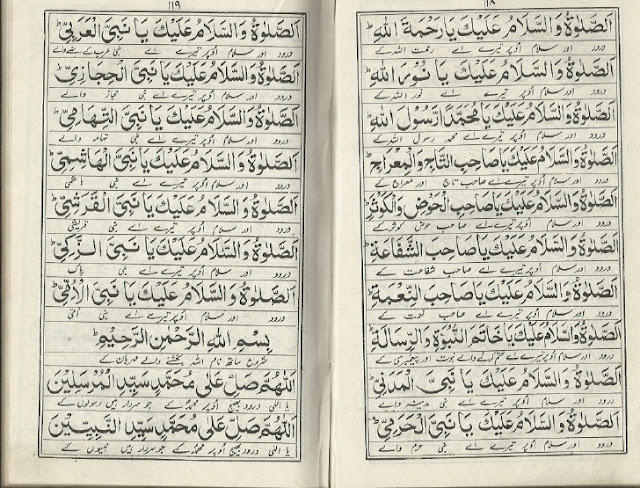 ۱۸
اَلصَّلٰوةُ وَالسَّلَامُ عَلَيْكَ يَا رَحْمَةَ اللهِ
درود اور سلام اُوپر تیرے اے رحمت اللہ کے
اَلصَّلٰوةُ وَالسَّلَامُ عَلَيْكَ يَا نُوْرَ اللهِ
درود اور سلام اُوپر تیرے اے نور اللہ کے
اَلصَّلٰوةُ وَالسَّلَامُ عَلَيْكَ يَا مُحَمَّدًا رَّسُوْلَ اللهِ
درود اور سلام اُوپر تیرے اے محمد رسول اللہ کے
اَلصَّلٰوةُ وَالسَّلَامُ عَلَيْكَ يَا صَاحِبَ التَّاجِ وَالْمِعْرَاجِ
درود اور سلام اُوپر تیرے اے صاحب تاج اور معراج کے
اَلصَّلٰوةُ وَالسَّلَامُ عَلَيْكَ يَا صَاحِبَ الْحَوْضِ وَالْكَوْثَرِ
درود اور سلام اُوپر تیرے اے صاحب حوض کوثر کے
اَلصَّلٰوةُ وَالسَّلَامُ عَلَيْكَ يَا صَاحِبَ الشَّفَاعَةِ
درود اور سلام اُوپر تیرے اے صاحب شفاعت کے
اَلصَّلٰوةُ وَالسَّلَامُ عَلَيْكَ يَا صَاحِبَ النِّعْمَةِ
درود اور سلام اُوپر تیرے اے صاحب نعمت کے
اَلصَّلٰوةُ وَالسَّلَامُ عَلَيْكَ يَا خَاتَمَ النُّبُوَّةِ وَالرِّسَالَةِ
درود اور سلام اُوپر تیرے اے ختم کرنے والے نبوت اور پیغمبری کے
اَلصَّلٰوةُ وَالسَّلَامُ عَلَيْكَ يَا نَبِيَّ الْمَدَنِيِّ
درود اور سلام اُوپر تیرے اے نبی مدینہ والے
اَلصَّلٰوةُ وَالسَّلَامُ عَلَيْكَ يَا نَبِيَّ الْحَرَمِيِّ
درود اور سلام اُوپر تیرے اے نبی حرم والے
۱۹
اَلصَّلٰوةُ وَالسَّلَامُ عَلَيْكَ يَا نَبِيَّ الْعَرَبِيِّ
درود اور سلام اُوپر تیرے اے نبی عرب کے رہنے والے
اَلصَّلٰوةُ وَالسَّلَامُ عَلَيْكَ يَا نَبِيَّ الْحِجَازِيِّ
درود اور سلام اُوپر تیرے اے نبی حجاز والے
اَلصَّلٰوةُ وَالسَّلَامُ عَلَيْكَ يَا نَبِيَّ التِّهَامِيِّ
درود اور سلام اُوپر تیرے اے نبی تہامہ والے
اَلصَّلٰوةُ وَالسَّلَامُ عَلَيْكَ يَا نَبِيَّ الْهَاشِمِيِّ
درود اور سلام اُوپر تیرے اے نبی ہاشمی
اَلصَّلٰوةُ وَالسَّلَامُ عَلَيْكَ يَا نَبِيَّ الْقَرَشِيِّ
درود اور سلام اُوپر تیرے اے نبی قریشی
اَلصَّلٰوةُ وَالسَّلَامُ عَلَيْكَ يَا نَبِيَّ الزَّكِيِّ
درود اور سلام اُوپر تیرے اے نبی پاک
اَلصَّلٰوةُ وَالسَّلَامُ عَلَيْكَ يَا نَبِيَّ الْاُمِّيِّ
درود اور سلام اُوپر تیرے اے نبی اُمّی
بِسْمِ اللهِ الرَّحْمٰنِ الرَّحِيْمِ
شروع ساتھ نام اللہ بخشنے والے مہربان کے
اَللّٰهُمَّ صَلِّ عَلٰى مُحَمَّدٍ سَيِّدِ الْمُرْسَلِيْنَ
یا الٰہی درود بھیج اُوپر محمد کے جو سردار ہیں رسولوں کے
اَللّٰهُمَّ صَلِّ عَلٰى مُحَمَّدٍ سَيِّدِ النَّبِيّٖنَ
یا الٰہی درود بھیج اُوپر محمد کے جو سردار ہیں نبیوں کے